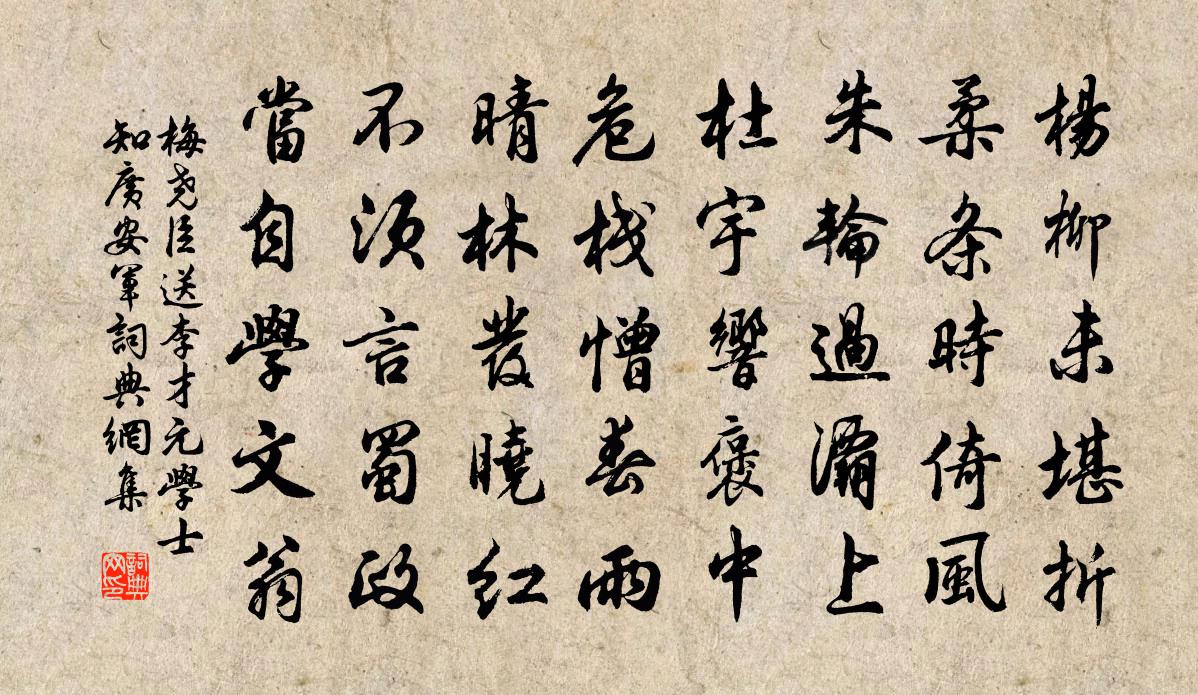 楊柳未堪折
柔条時倚風
朱輪過灞上
杜宇響褒中
危棧憎春雨
晴林發曉紅
不須言蜀政
當自學文翁
梅堯臣送李才元學士
知廣安軍詞典網集
詞典
网印